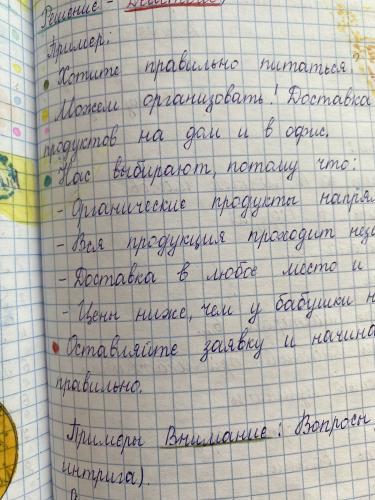 Решение -
Пример:
Хотите правильно питаться?
Можем организовать! Доставка
продуктов на дом и в офис.
Нас выбирают, потому что:
- Органические продукты
- Вся продукция проходит
- Доставка в любое место и
- Цены ниже, чем у бабушки
Оставляйте заявку и
правильно.
Примеры Внимание: Вопросы
интрига).